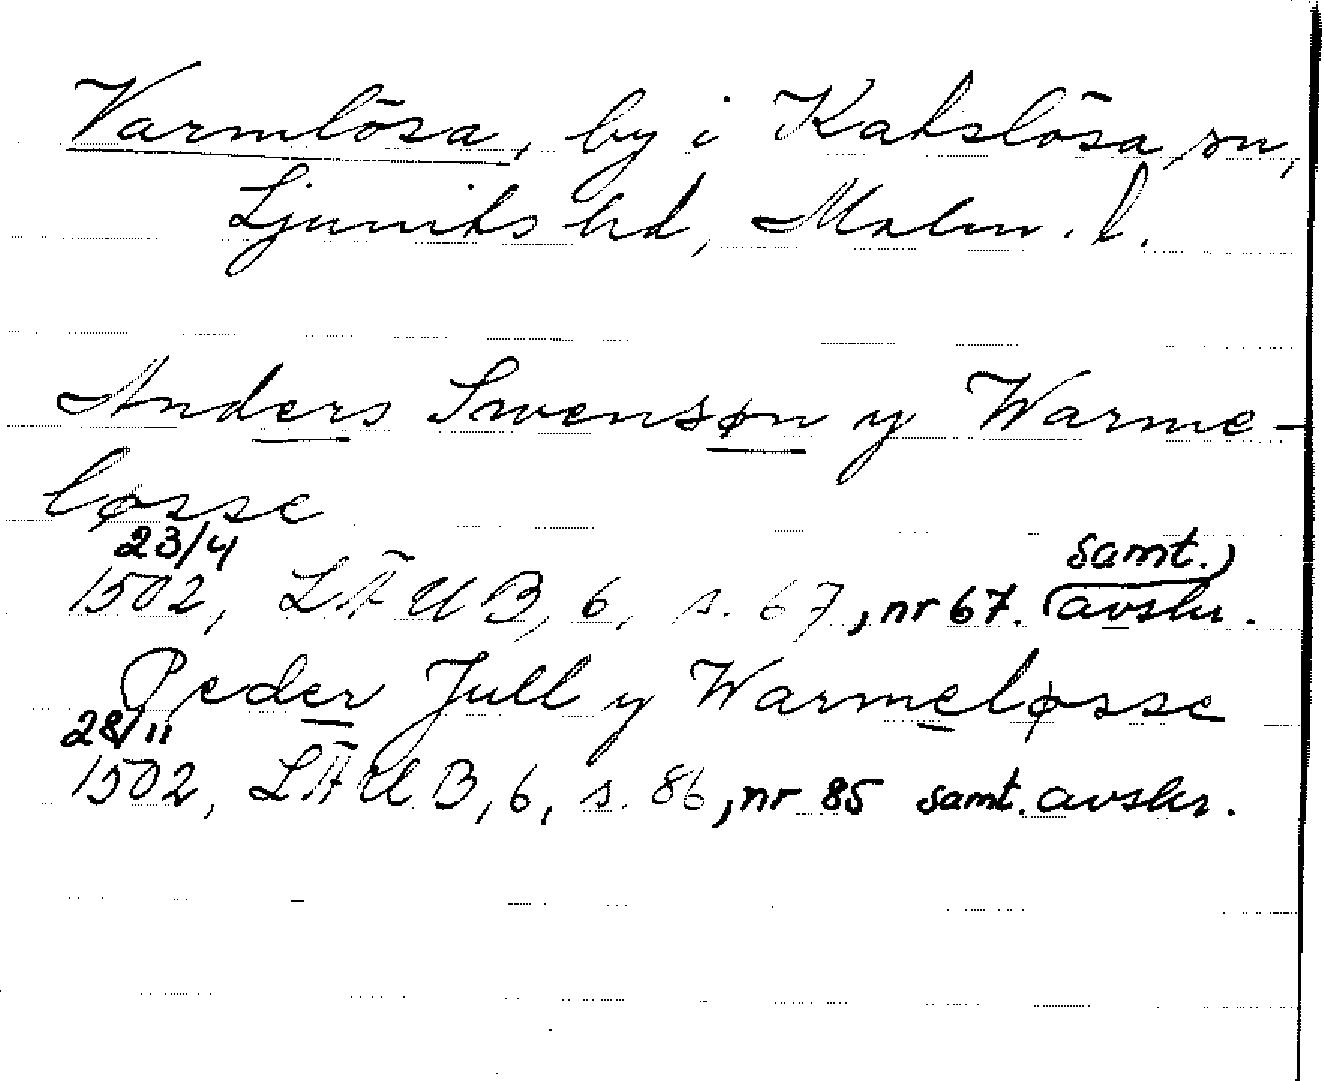 Varmlösa, by i Katslösa sn,
Ljunits hd, Malm. l.
Anders Swensøn y Warme-
løsse
23/4 samt.)
1502, LÄUB, 6, s. 67, nr 67. (avskr.
Peder Jull y Warmeløsse
28/11
1502, LÄUB, 6, s. 86, nr 85 samt. avskr.